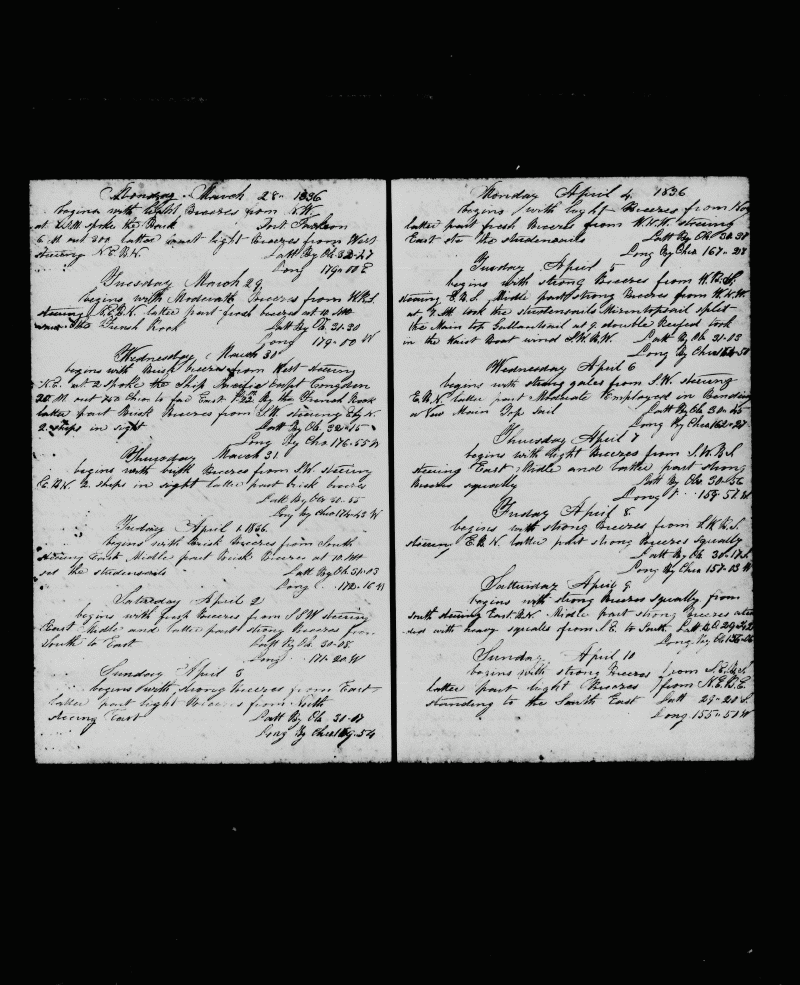 Monday March 28th 1836
begins with light Breezes from S.W.
at spoke the Bark Fort
6 M out 300 latter part light Breezes from West
steering N.E.B.N. Latt By Ob 32-47
Long 179-00 E
Tuesday March 29
begins with Moderate Breezes from W.B.S.
steering E.B.N. latter part fresh breezes at 10 AM
saw the French Rock Latt By Ob. 31-20
Long 179-00 W
Wednesday March 30
begins with Brisk breezes from West steering
N.E. at 2 spoke the Ship Pacific Capt Congdon
20 M out Chro to far East By the French Rock
latter part Brisk Breezes from S.W. steering Eby N.
2 ships in sight Latt By Ob. 32-15
Long By Chro 176-55 W
Thursday March 31
begins with brisk Breezes from S.W. steering
E.B.N. 2 ships in sight latter part brisk breezes
Latt By Obs 30-55
Long By Chro 174-43 W
Friday April 1 1836
begins with Brisk Breezes from South
steering East Middle part Brisk Breezes at 10 AM
set the studensails Latt By Ob 31-03
Long 172-16 W
Saturday April 2
begins with fresh Breezes from S.S.W. steering
East Middle and latter part strong Breezes from
South to East Latt By Ob. 30-05
Long 171-20 W
Sunday April 3
begins with strong breezes from East
latter part light Breezes from North
steering East Latt By Ob. 31-17
Long By Chro 169-54
Monday April 4 1836
begins with light Breezes from
latter part fresh Breezes from W.N.W. steering
East the studensails Latt By Obs 30-38
Long By Chro 167-28
Tuesday April 5
begins with strong Breezes from W.B.S.
steering E.B.S. Middle part strong Breezes from W.N.W.
at 7 AM took the studensails Mizentopsail split
the Main top Gallantsail at 9 double Reefed took
in the Waist Boat wind S.W.B.W. Latt By Ob 31-03
Long By Chro 164-50
Wednesday April 6
begins with strong gales from S.W. steering
E.B.N. latter part Moderate Employed in Bending
a New Main Top sail Latt By Ob. 30-45
Long By Chro 162-27
Thursday April 7
begins with light Breezes from S.W.B.S.
steering East Middle and latter part strong
Breezes squally Latt By Obs 30-36
Long 159-51 W
Friday April 8
begins with strong Breezes from S.W.B.S.
steering E.B.N. latter part strong Breezes squally
Latt By Ob 30-17 S
Long By Chro 157-13 W
Satturday April 9
begins with strong Breezes squally from
South steering East.B.N. Middle part strong breezes
with heavy squalls from S.E. to South Latt 29-42
Long By Ch 156-06
Sunday April 10
begins with strong Breezes from S.E.B.S.
latter part light Breezes from N.E.B.E.
standing to the South East Latt 29-20 S.
Long 155-51 W